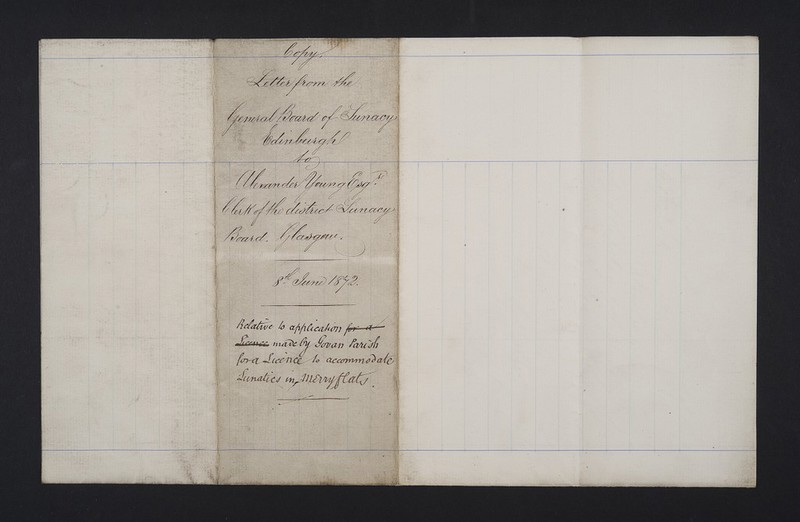 Copy.
Letter from the
General Board of Lunacy
Edinburgh
to
Alexander Young Esqr.
Clerk of the district Lunacy
Board. Glasgow.
8th June 1872.
Relative to application for a
Licence made by Govan Parish
for a Licence to accommodate
Lunatics in Merryflats.